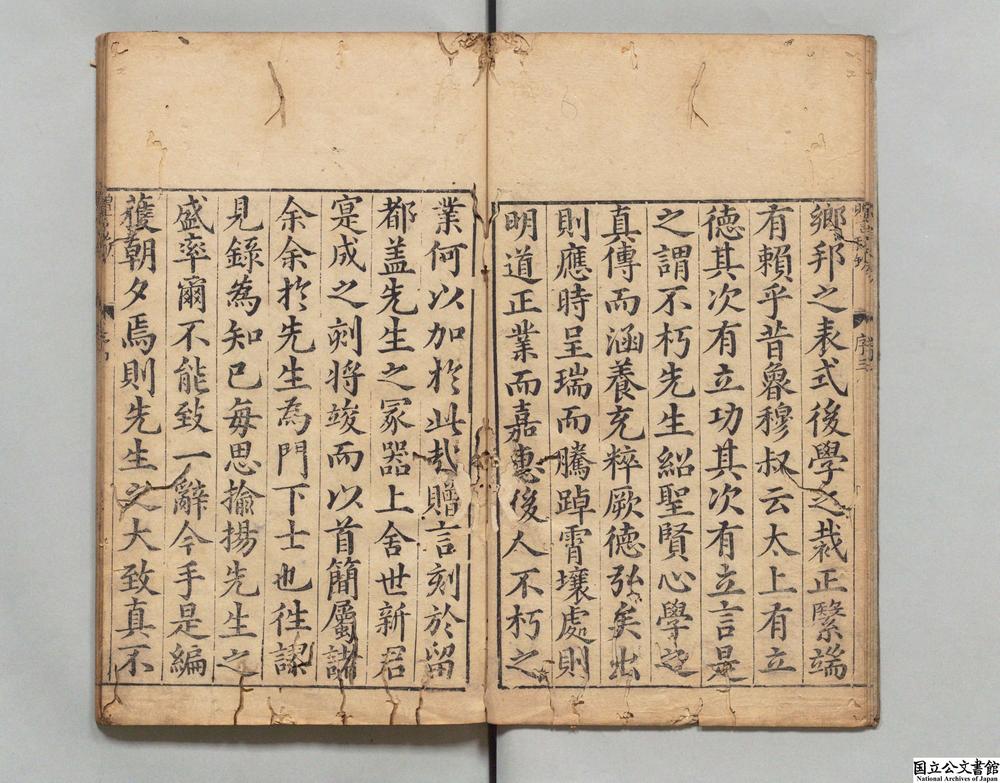 鄉邦之表式後學之裁正緊端
有賴乎昔魯穆叔云太上有立
德其次有立功其次有立言是
之謂不朽先生紹聖賢心學之
真傳而涵養充粹厥德弘矣出
則應時呈瑞而騰踔霄壤處則
明道正業而嘉惠後人不朽之
業何以加於此哉贈言刻於留
都盖先生之冢器上舍世新君
寔成之刻将竣而以首簡屬諸
余余於先生為門下士也徃謬
見錄為知已每思揄揚先生之
盛率爾不能致一辭今手是編
蒦朝夕焉則先生之大致真不
国立公文書館
National Archives of Japan